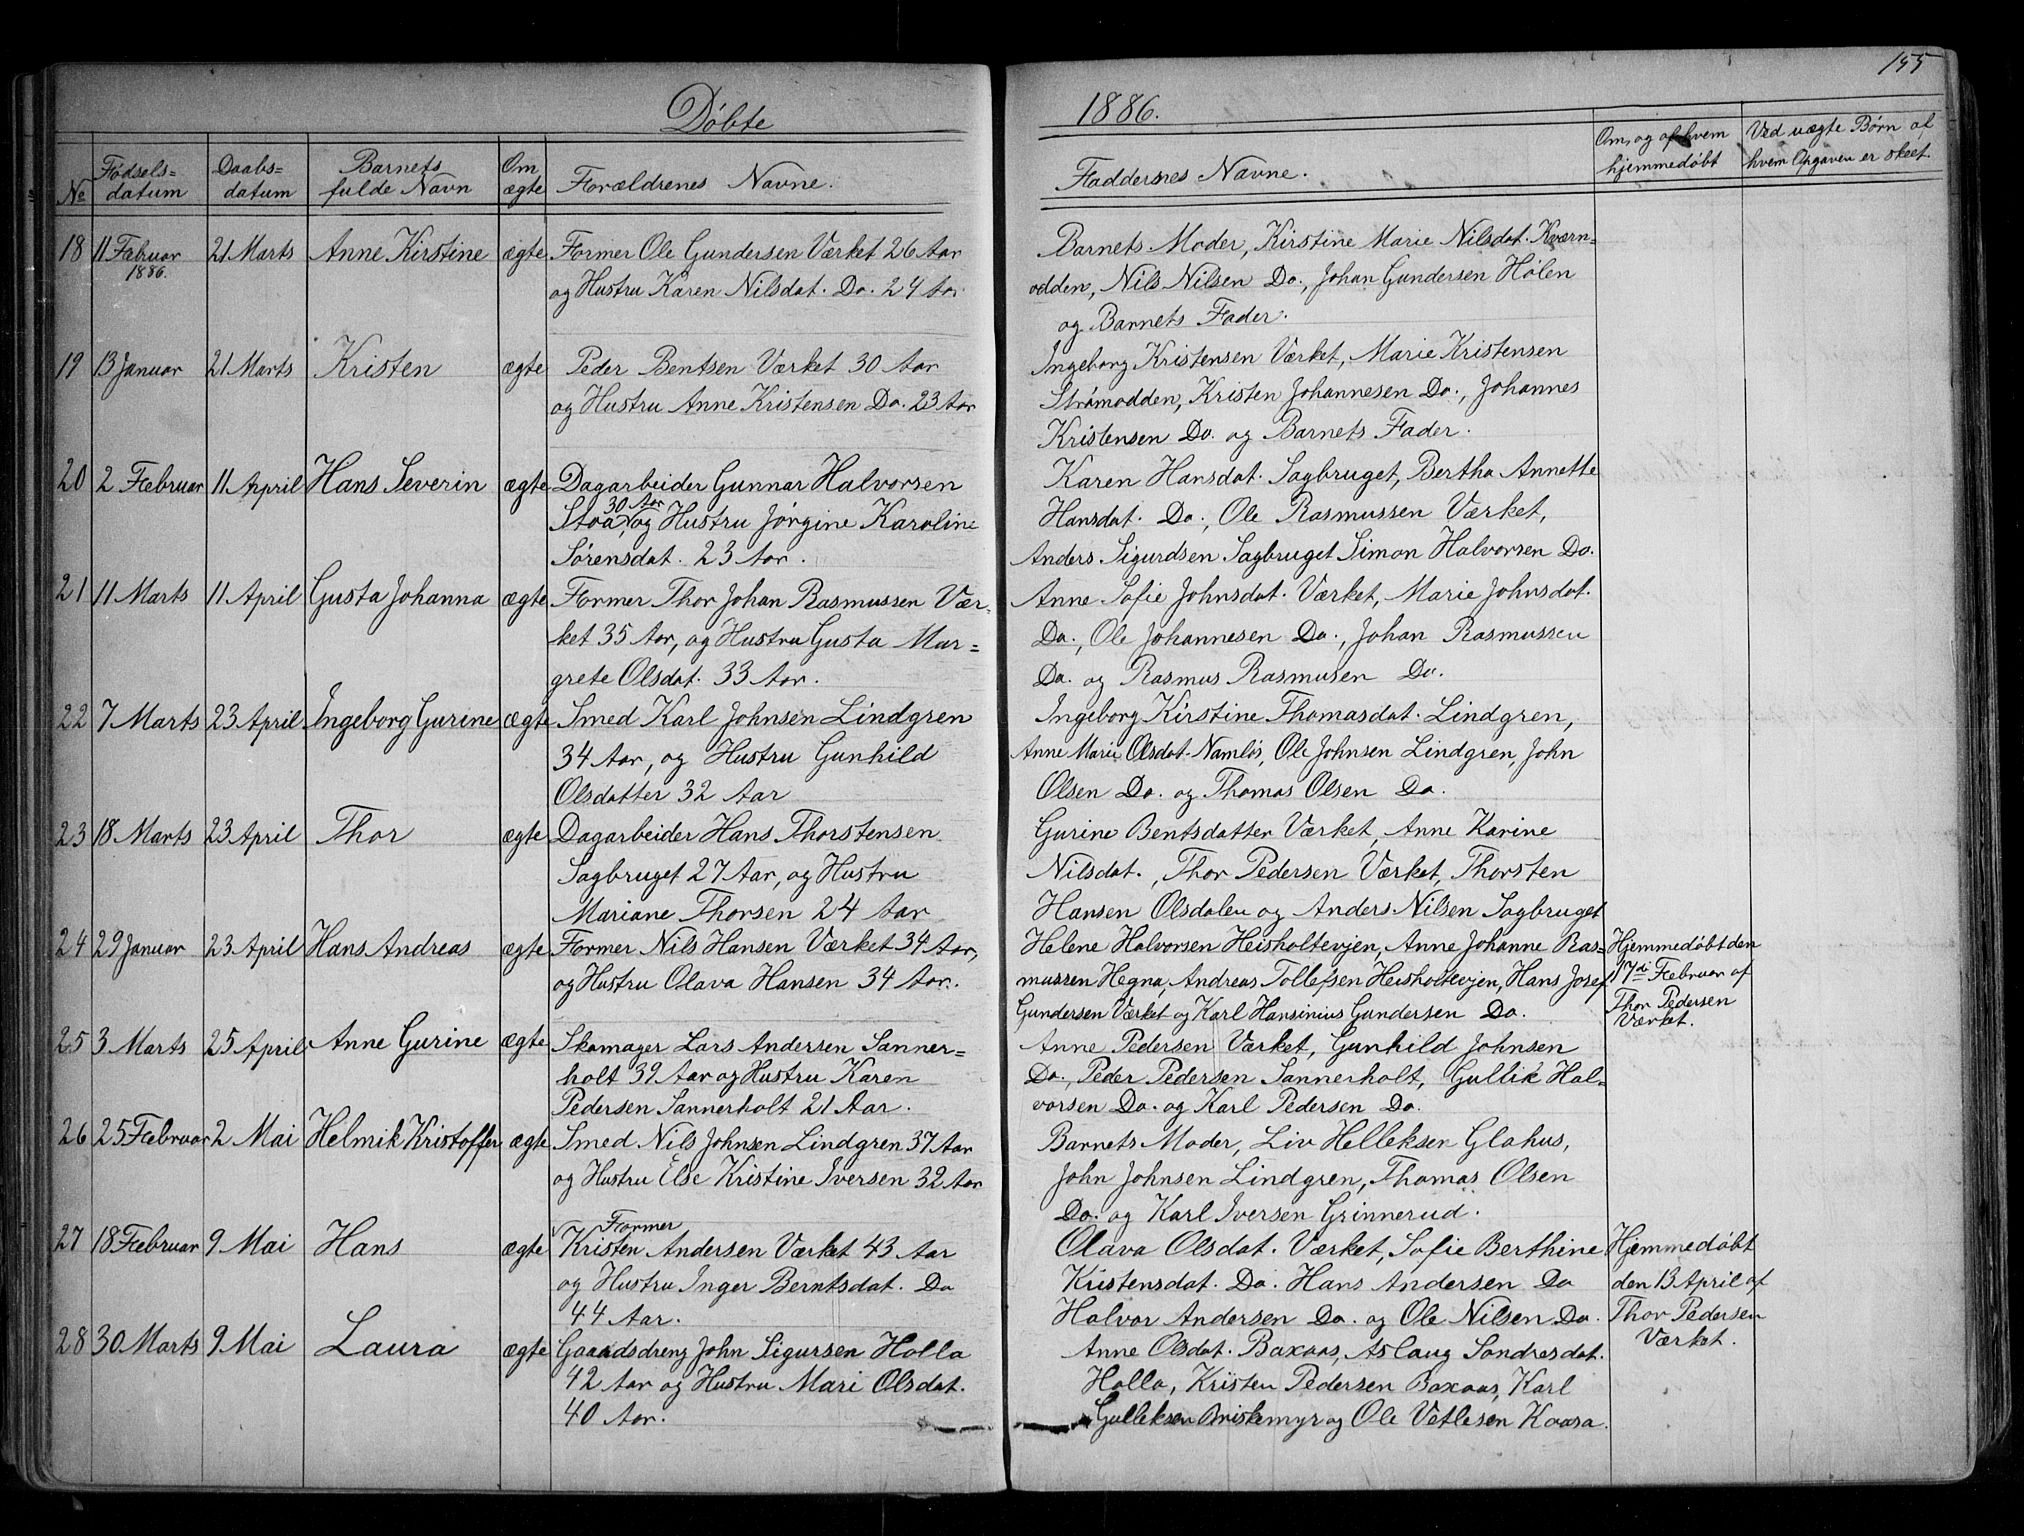 155
Døbte
1886.
№
Fødsels=
datum
Daabs=
datum
Barnets
fulde Navn
Om
ægte
Forældrenes Navne.
Faddernes Navne.
Om, og af hvem
hjemmedøbt
Ved uægte Børn af
hvem Opgaven er skeet.
18 11 Februar 21 Marts Anne Kirstine ægte Former Ole Gundersen Værket 26 Aar
1886.
og Hustru Karen Nilsdat. Do. 24 Aar.
Barnets Moder, Kirstine Marie Nilsdat. Kværn=
odden, Nils Nilsen Do., Johan Gundersen Hølen
og Barnets Fader.
19 13 Januar 21 Marts Kristen ægte Peder Bentsen Værket 30 Aar
og Hustru Anne Kristensen Do. 23 Aar
Ingeborg Kristensen Værket, Marie Kristensen
Strømodden, Kristen Johannesen Do., Johannes
Kristensen Do. og Barnets Fader.
20 2 Februar 11 April Hans Severin ægte Dagarbeider Gunnar Halvorsen
30 Aar
Stoa, og Hustru Jørgine Karoline
Sørensdat. 23 Aar.
Karen Hansdat. Sagbruget, Bertha Annette
Hansdat. Do., Ole Rasmussen Værket,
Anders Sigurdsen Sagbruget Simon Halvorsen Do.
21 11 Marts 11 April Gusta Johanna ægte Former Thor Johan Rasmussen Vær-
ket 35 Aar, og Hustru Gusta Mar=
grete Olsdat. 33 Aar.
Anne Sofie Johnsdat. Værket, Marie Johnsdat.
Do., Ole Johannesen Do., Johan Rasmussen
Do. og Rasmus Rasmusen Do.
22 7 Marts 23 April Ingeborg Gurine ægte Smed Karl Johnsen Lindgren
34 Aar, og Hustru Gunhild
Olsdatter 32 Aar
Ingeborg Kirstine Thomasdat. Lindgren,
Anne Marie Olsdat. Namløs, Ole Johnsen Lindgren, John
Olsen Do. og Thomas Olsen Do.
23 18 Marts 23 April Thor ægte Dagarbeider Hans Thorstensen
Sagbruget 27 Aar, og Hustru
Mariane Thorsen 24 Aar
Gurine Bentsdatter Værket, Anne Karine
Nilsdat., Thor Pedersen Værket, Thorsten
Hansen Olsdalen og Anders Nilsen Sagbruget
24 29 Januar 23 April Hans Andreas ægte Former Nils Hansen Værket 34 Aar,
og Hustru Olava Hansen 34 Aar.
Helene Halvorsen Heisholtevjen, Anne Johanne Ras=
mussen Hegna, Andreas Tollefsen Heisholtevjen, Hans Josef
Gundersen Værket og Karl Hansinius Gundersen Do.
Hjemmedøbt den
17de Februar af
Thor Pedersen
Værket.
25 3 Marts 25 April Anne Gurine ægte Skomager Lars Andersen Sanner=
holt 39 Aar og Hustru Karen
Pedersen Sannerholt 21 Aar.
Anne Pedersen Værket, Gunhild Johnsen
Do., Peder Pedersen Sannerholt, Gullik Hal=
vorsen Do. og Karl Pedersen Do.
26 25 Februar 2 Mai Helmik Kristoffer ægte Smed Nils Johnsen Lindgren 37 Aar
og Hustru Else Kristine Iversen 32 Aar
Barnets Moder, Liv Helleksen Glahus,
John Johnsen Lindgren, Thomas Olsen
Do. og Karl Iversen Grinnerud.
27 18 Februar 9 Mai Hans ægte
Former
Kristen Andersen Værket 43 Aar
og Hustru Inger Berntsdat. Do
44 Aar.
Olava Olsdat. Værket, Sofie Berthine
Kristensdat. Do. Hans Andersen Do
Halvor Andersen Do. og Ole Nilsen Do.
Hjemmedøbt
den 13 April af
Thor Pedersen
Værket.
28 30 Marts 9 Mai Laura ægte Gaardsdreng John Sigursen Holla
42 Aar og Hustru Mari Olsdat.
40 Aar.
Anne Olsdat. Baxaas, Aslaug Sondresdat.
Holla, Kristen Pedersen Baxaas, Karl
Gulleksen Briskemyr og Ole Vetlesen Kaasa.